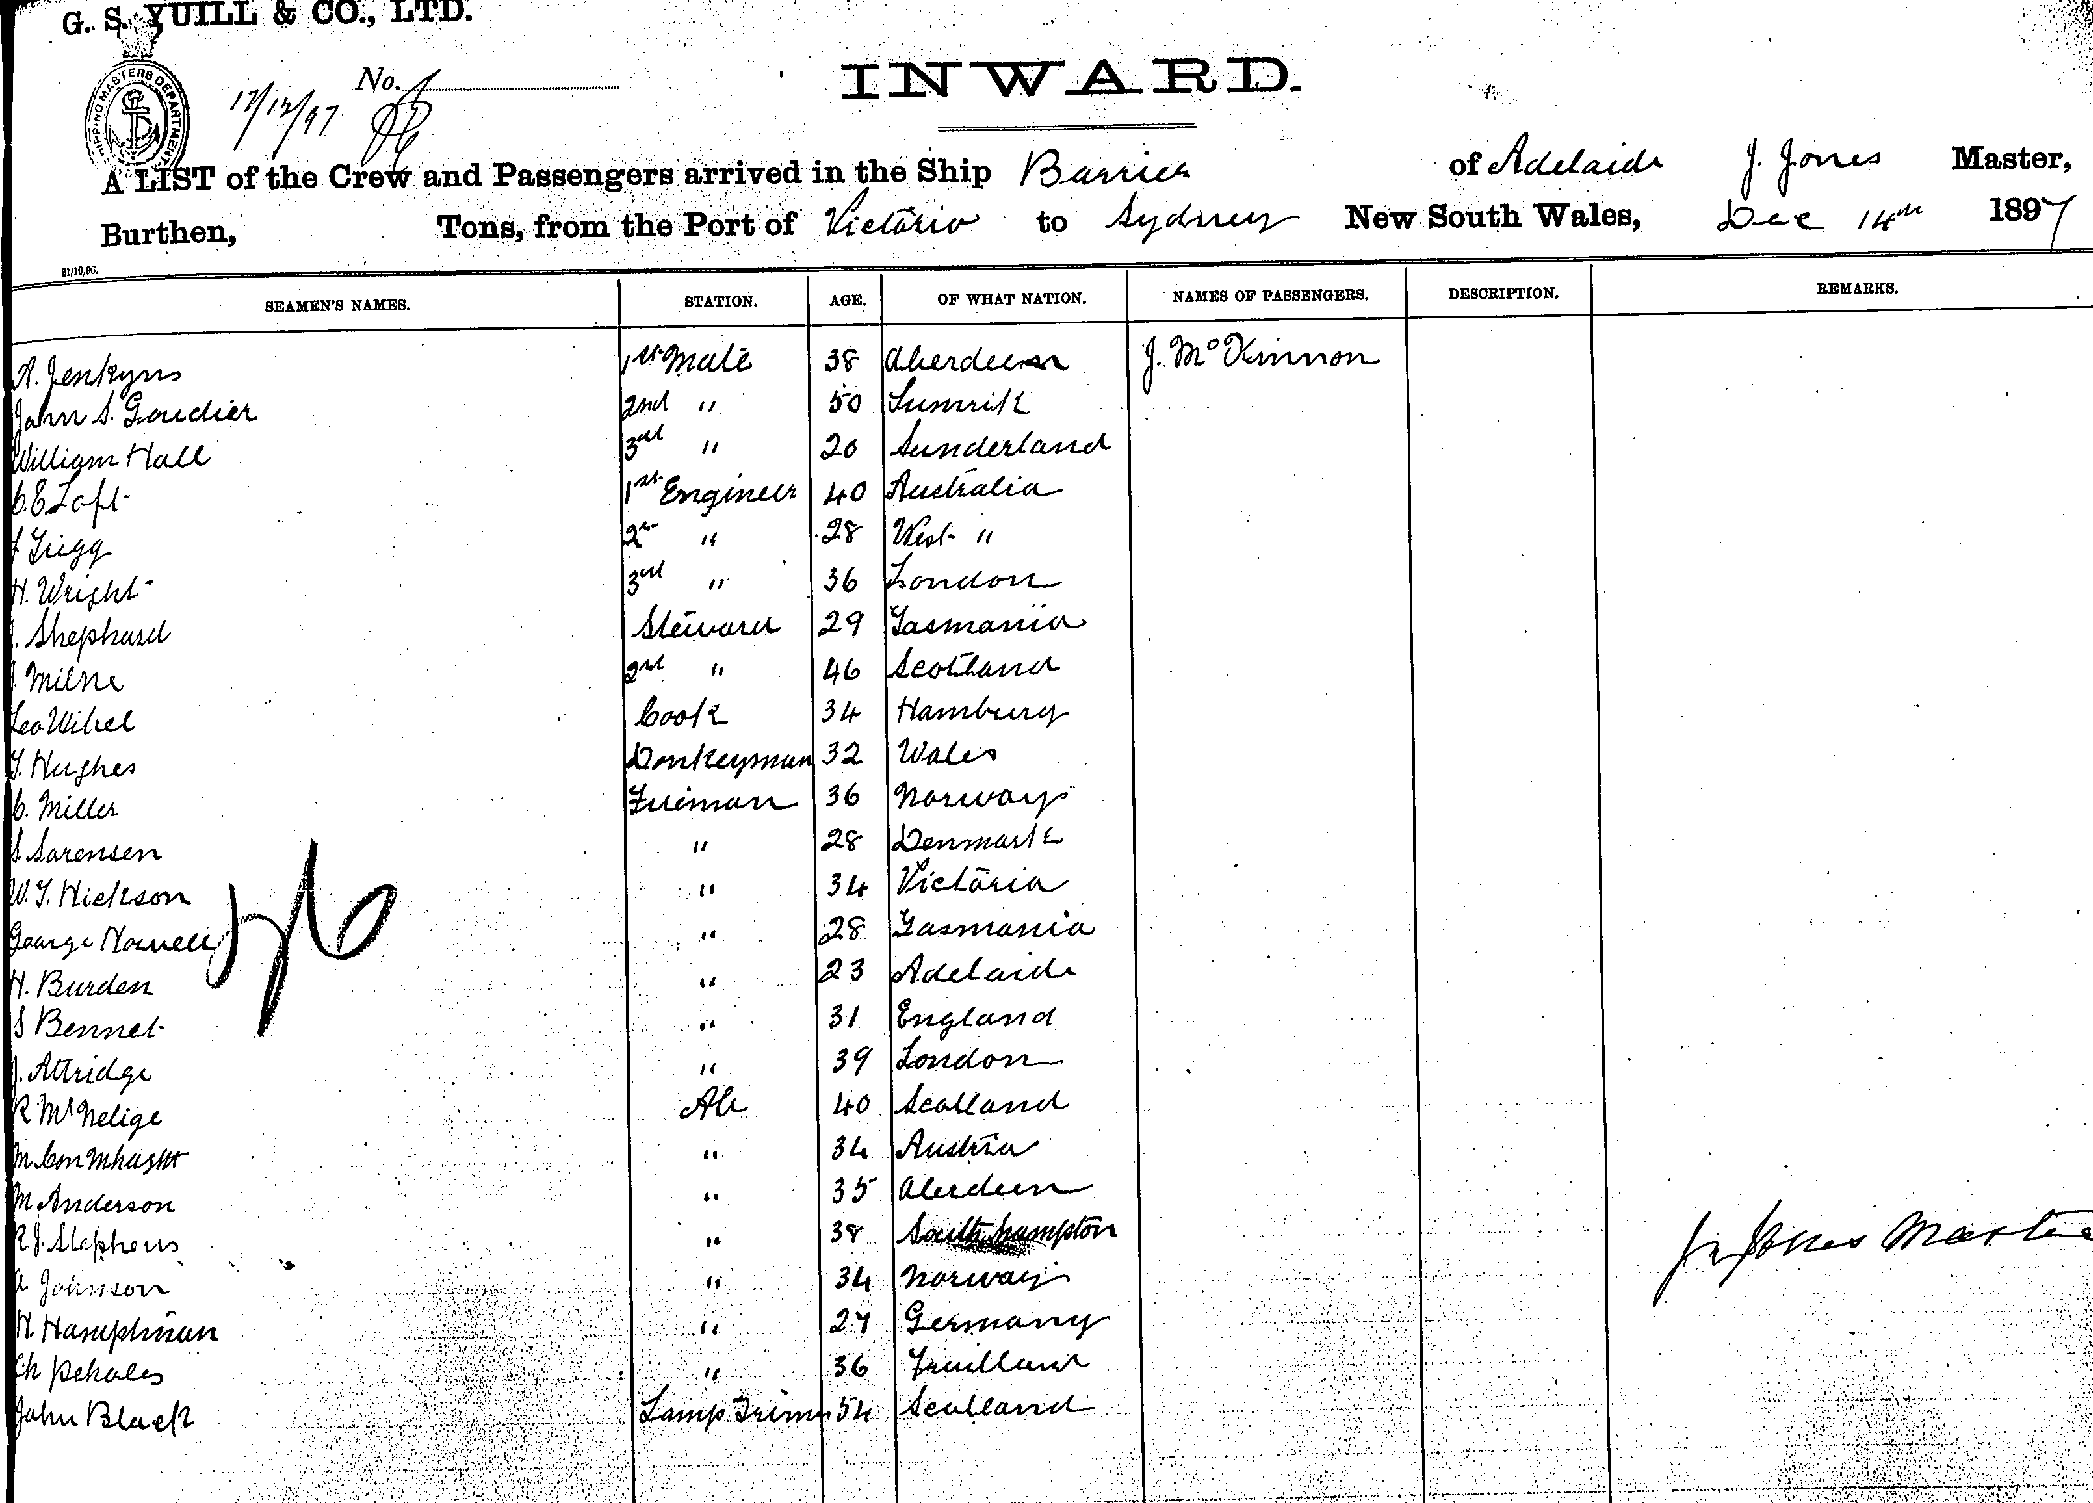 G. S. YUILL & CO., LTD.
SHIPPING MASTERS DEPARTMENT
17/12/97 No.
INWARD.
A LIST of the Crew and Passengers arrived in the Ship Barrier of Adelaide J. Jones Master,
Burthen, Tons, from the Port of Victoria to Sydney New South Wales, Dec 14th 1897
SEAMEN'S NAMES. STATION. AGE. OF WHAT NATION. NAMES OF PASSENGERS. DESCRIPTION. REMARKS.
A. Jenkyns 1st Mate 38 Aberdeen J. McKinnon
John S. Goudier 2nd " 50
William Hall 3rd " 20 Sunderland
C E Loft 1st Engineer 40 Australia
Trigg 2nd " 28 West "
H. Wright 3rd " 36 London
Shephard Steward 29 Tasmania
Milne 2nd " 46 Scotland
Leo Wibel Cook 34 Hamburg
T. Hughes Donkeyman 32 Wales
C. Miller Fireman 36 Norway
S Sorensen " 28 Denmark
W. T. Hickson " 34 Victoria
George Howell " 28 Tasmania
H. Burden " 23 Adelaide
S Bennet " 31 England
J. Attridge " 39 London
R McNelige Ab 40 Scotland
M " 34 Austria
M Anderson " 35 Aberdeen
R J. Stephens " 38 Southampton
A Johnson " 34 Norway
H. Hamptman " 27 Germany
Ch " 36
John Black Lamp Trimr 54 Scotland
Jn Jones Master